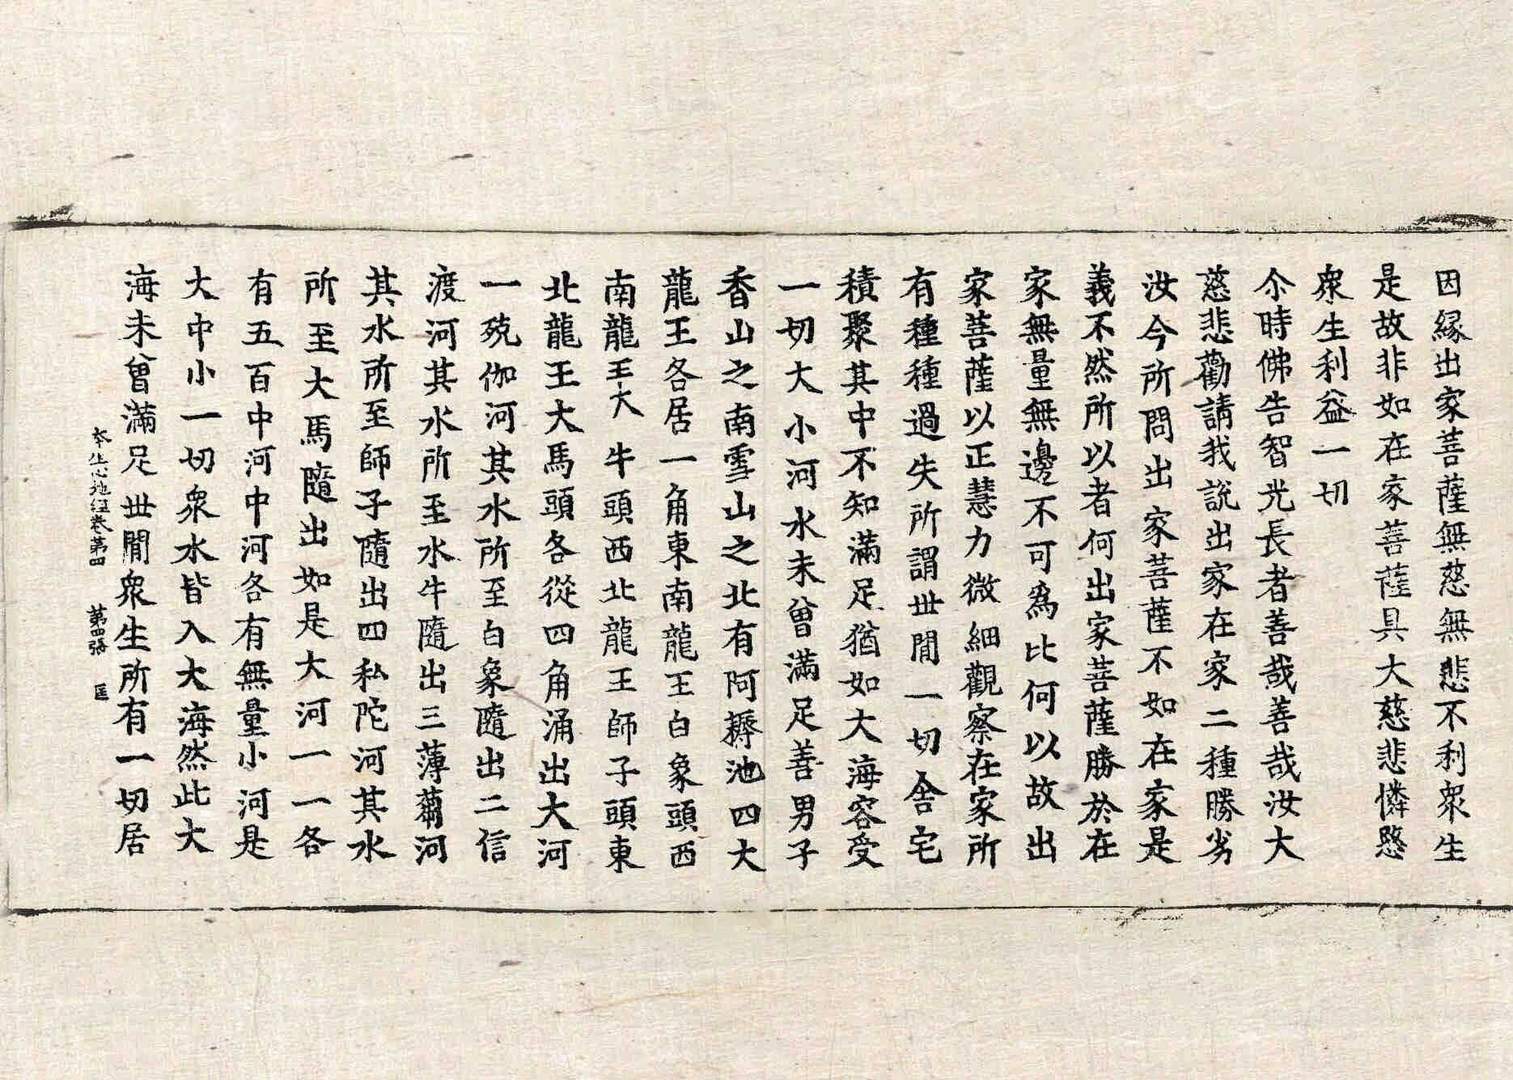 因緣出家菩薩無慈無悲不利眾生
是故非如在家菩薩具大慈悲憐愍
眾生利益一切
尒時佛告智光長者善哉善哉汝大
慈悲勸請我說出家在家二種勝劣
汝今所問出家菩薩不如在家是
義不然所以者何出家菩薩勝於在
家無量無邊不可為比何以故出
家菩薩以正慧力微細觀察在家所
有種種過失所謂世間一切舍宅
積聚其中不知滿足猶如大海容受
一切大小河水未曾滿足善男子
香山之南雪山之北有阿耨池四大
龍王各居一角東南龍王白象頭西
南龍王大牛頭西北龍王師子頭東
北龍王大馬頭各從四角涌出大河
一殑伽河其水所至白象隨出二信
渡河其水所至水牛隨出三薄蒭河
其水所至師子隨出四私陀河其水
所至大馬隨出如是大河一一各
有五百中河中河各有無量小河是
大中小一切眾水皆入大海然此大
海未曾滿足世間眾生所有一切居
本生心地經卷第四 第四張 匡